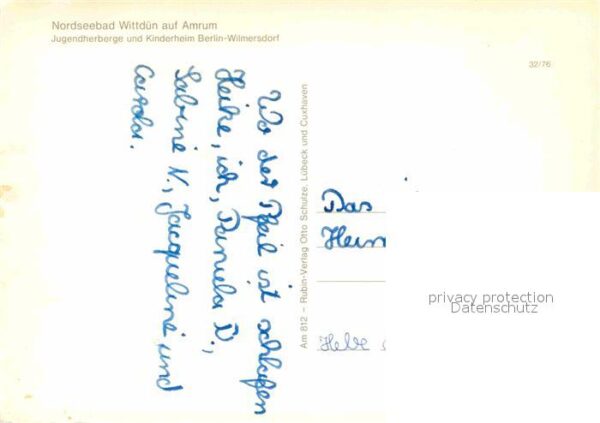 Nordseebad Wittdün auf Amrum
Jugendherberge und Kinderheim Berlin-Wilmersdorf
32/76
Wo der Pfeil ist schlafen
Heike, ich, Daniela D.,
Sabine N., Jacqueline und
Carola.
Am 812 – Rubin-Verlag Otto Schulze, Lübeck und Cuxhaven
Das
Heim
privacy protection
Datenschutz